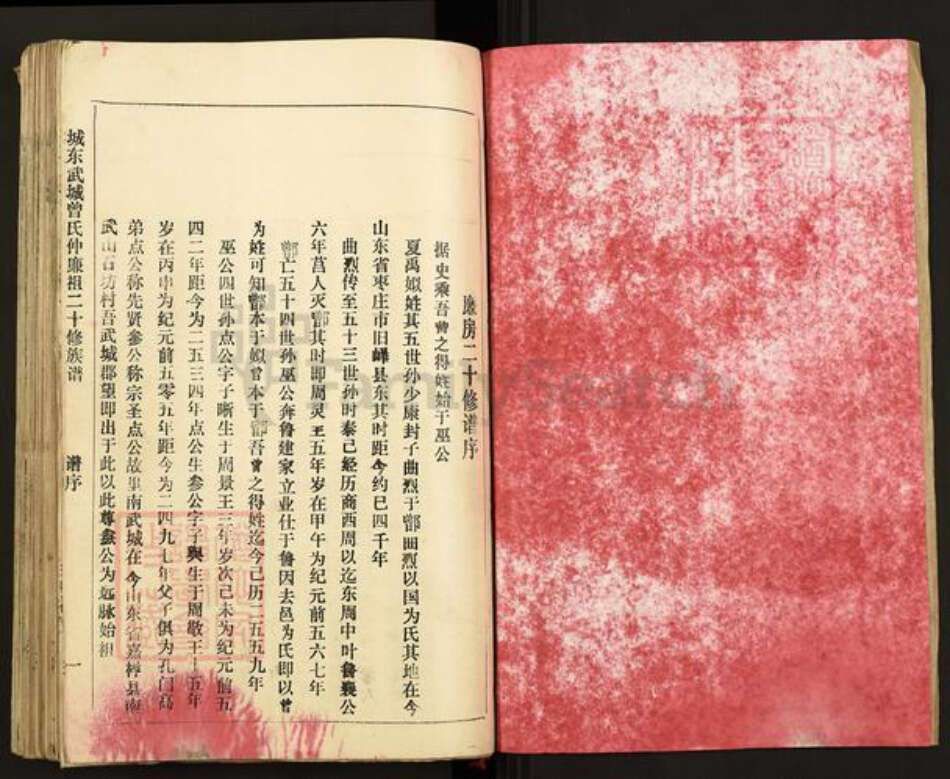 廉房二十修谱序
据史乘吾曾之得姓始于巫公
夏禹姒姓其五世孙少康封子曲烈于鄫曲烈以国为氏其地在今
山东省枣庄市旧嶧县东其时距今约已四千年
曲烈传至五十三世孙时泰已经历商西周以迄东周中叶鲁襄公
六年莒人灭鄫其时即周灵王五年岁在甲午为纪元前五六七年
鄫亡五十四世孙巫公奔鲁建家立业仕于鲁因去邑为氏即以曾
为姓可知鄫本于姒曾本于鄫吾曾之得姓迄今已历二五五九年
巫公四世孙点公字子晰生于周景王三年岁次己未为纪元前五
四二年距今为二五三四年点公生参公字子與生于周敬王十五年
岁在丙申为纪元前五零五年距今为二四九七年父子俱为孔门高
弟点公称先贤参公称宗圣点公故里南武城在今山东省嘉祥县南
武山石坊村吾武城郡望即出于此以此尊叁公为远脉始祖
城东武城曾氏仲廉祖二十修族谱
谱序
一